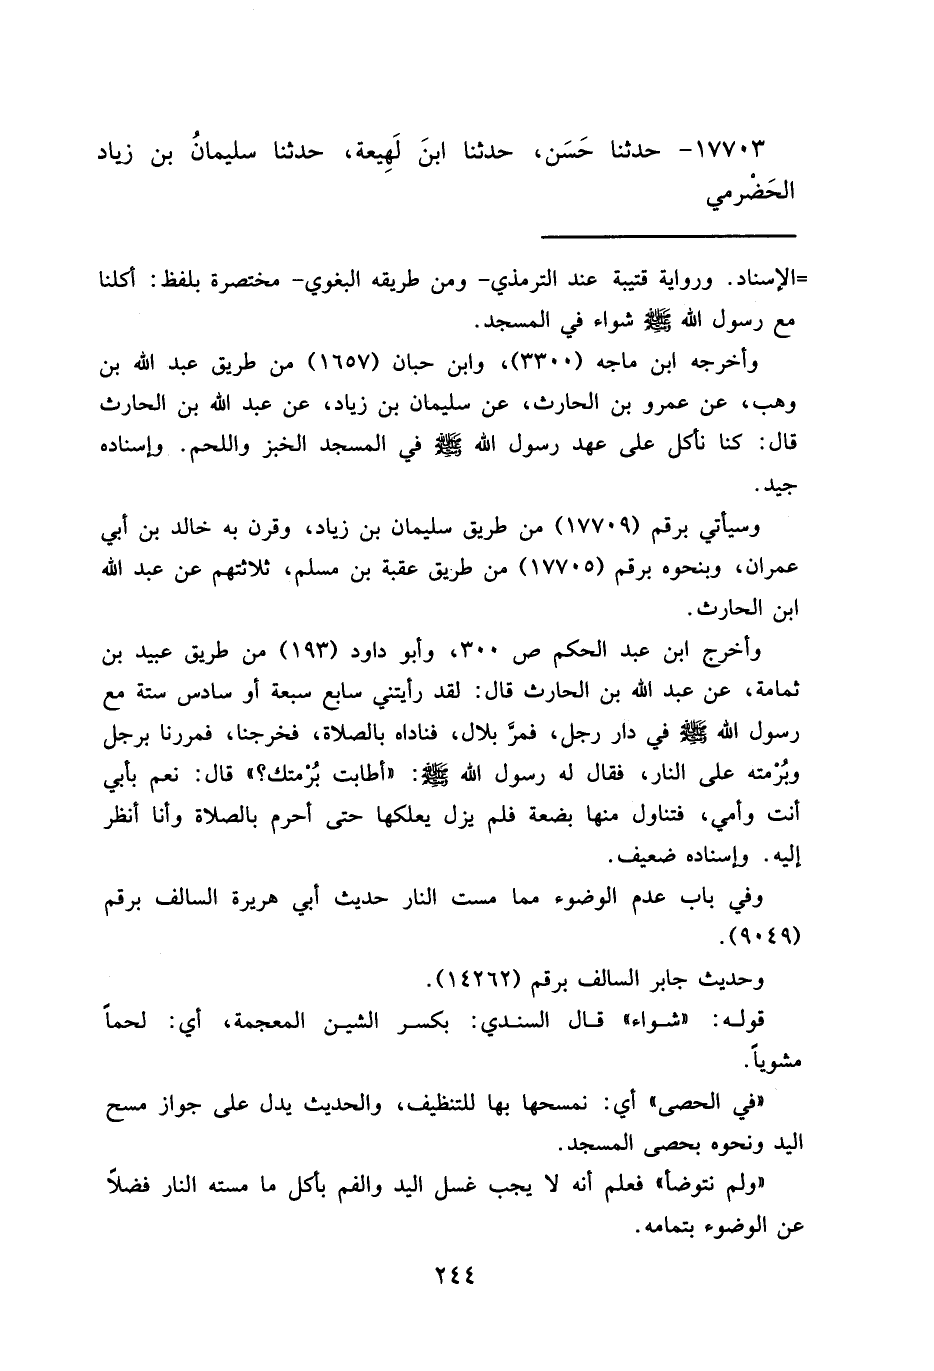 ١٧٧٠٣- حدثنا حَسَن، حدثنا ابنَ لَهِيعة، حدثنا سليمانُ بن زياد
الحَضْرمي
=الإسناد. ورواية قتيبة عند الترمذي- ومن طريقه البغوي- مختصرة بلفظ: أكلنا
مع رسول الله ﷺ شواء في المسجد.
وأخرجه ابن ماجه (٣٣٠٠)، وابن حبان (١٦٥٧) من طريق عبد الله بن
وهب، عن عمرو بن الحارث، عن سليمان بن زياد، عن عبد الله بن الحارث
قال: كنا نأكل على عهد رسول الله ﷺ في المسجد الخبز واللحم. وإسناده
جيد.
وسيأتي برقم (١٧٧٠٩) من طريق سليمان بن زياد، وقرن به خالد بن أبي
عمران، وبنحوه برقم (١٧٧٠٥) من طريق عقبة بن مسلم، ثلاثتهم عن عبد الله
ابن الحارث.
وأخرج ابن عبد الحكم ص ٣٠٠، وأبو داود (١٩٣) من طريق عبيد بن
ثمامة، عن عبد الله بن الحارث قال: لقد رأيتني سابع سبعة أو سادس ستة مع
رسول الله ﷺ في دار رجل، فمرَّ بلال، فناداه بالصلاة، فخرجنا، فمررنا برجل
وبُرْمته على النار، فقال له رسول الله ﷺ: «أطابت بُرْمتك؟» قال: نعم بأبي
أنت وأمي، فتناول منها بضعة فلم يزل يعلكها حتى أحرم بالصلاة وأنا أنظر
إليه. وإسناده ضعيف.
وفي باب عدم الوضوء مما مست النار حديث أبي هريرة السالف برقم
(٩٠٤٩).
وحديث جابر السالف برقم (١٤٢٦٢).
قوله: «شواء» قال السندي: بكسر الشين المعجمة، أي: لحماً
مشوياً.
«في الحصى» أي: نمسحها بها للتنظيف، والحديث يدل على جواز مسح
اليد ونحوه بحصى المسجد.
«ولم نتوضأ» فعلم أنه لا يجب غسل اليد والفم بأكل ما مسته النار فضلاً
عن الوضوء بتمامه.
٢٤٤